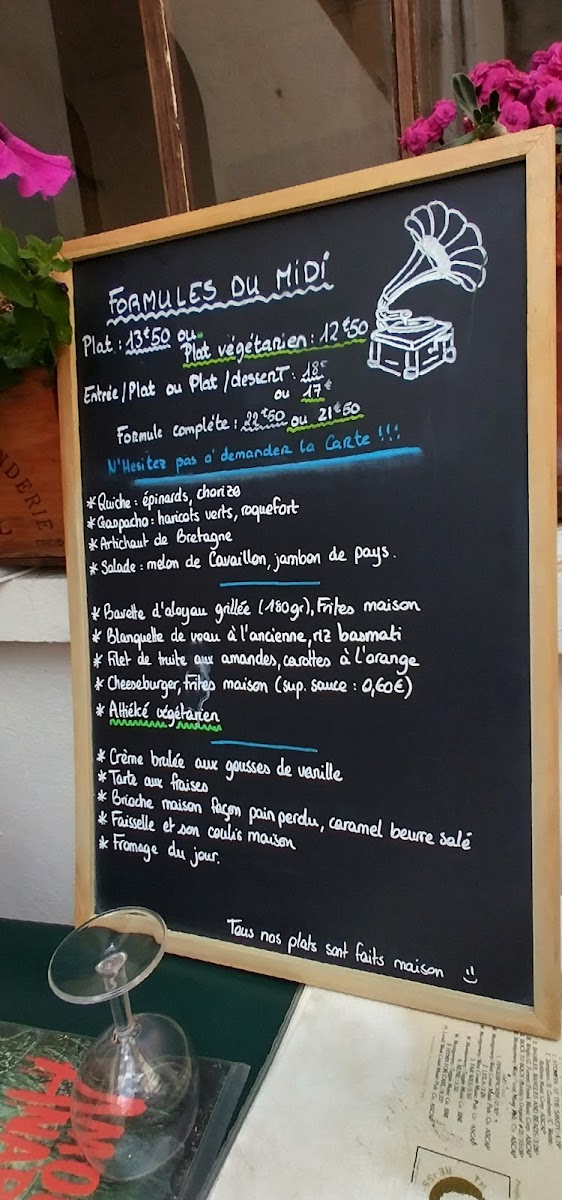 FORMULES DU MiDi
Plat : 13€50 ou
Plat végétarien : 12€50
Entrée/Plat ou Plat/desserT : 18€
ou 17€
Formule complète : 22€50 ou 21€50
N'Hesitez pas a' demander la Carte !!!
* Quiche : épinards, chorizo
* Gaspacho : haricots verts, roquefort
* Artichaut de Bretagne
* Salade : melon de Cavaillon, jambon de pays.
* Bavette d'aloyau grillée (180gr), Frites maison
* Blanquette de veau à l'ancienne, riz basmati
* Filet de truite aux amandes, carottes à l'orange
* Cheeseburger, frites maison (sup. sauce : 0,60€)
* Attiéké végétarien
* Crème brulée aux gousses de vanille
* Tarte aux fraises
* Brioche maison façon pain perdu, caramel beurre salé
* Faisselle et son coulis maison
* Fromage du jour.
Tous nos plats sont faits maison